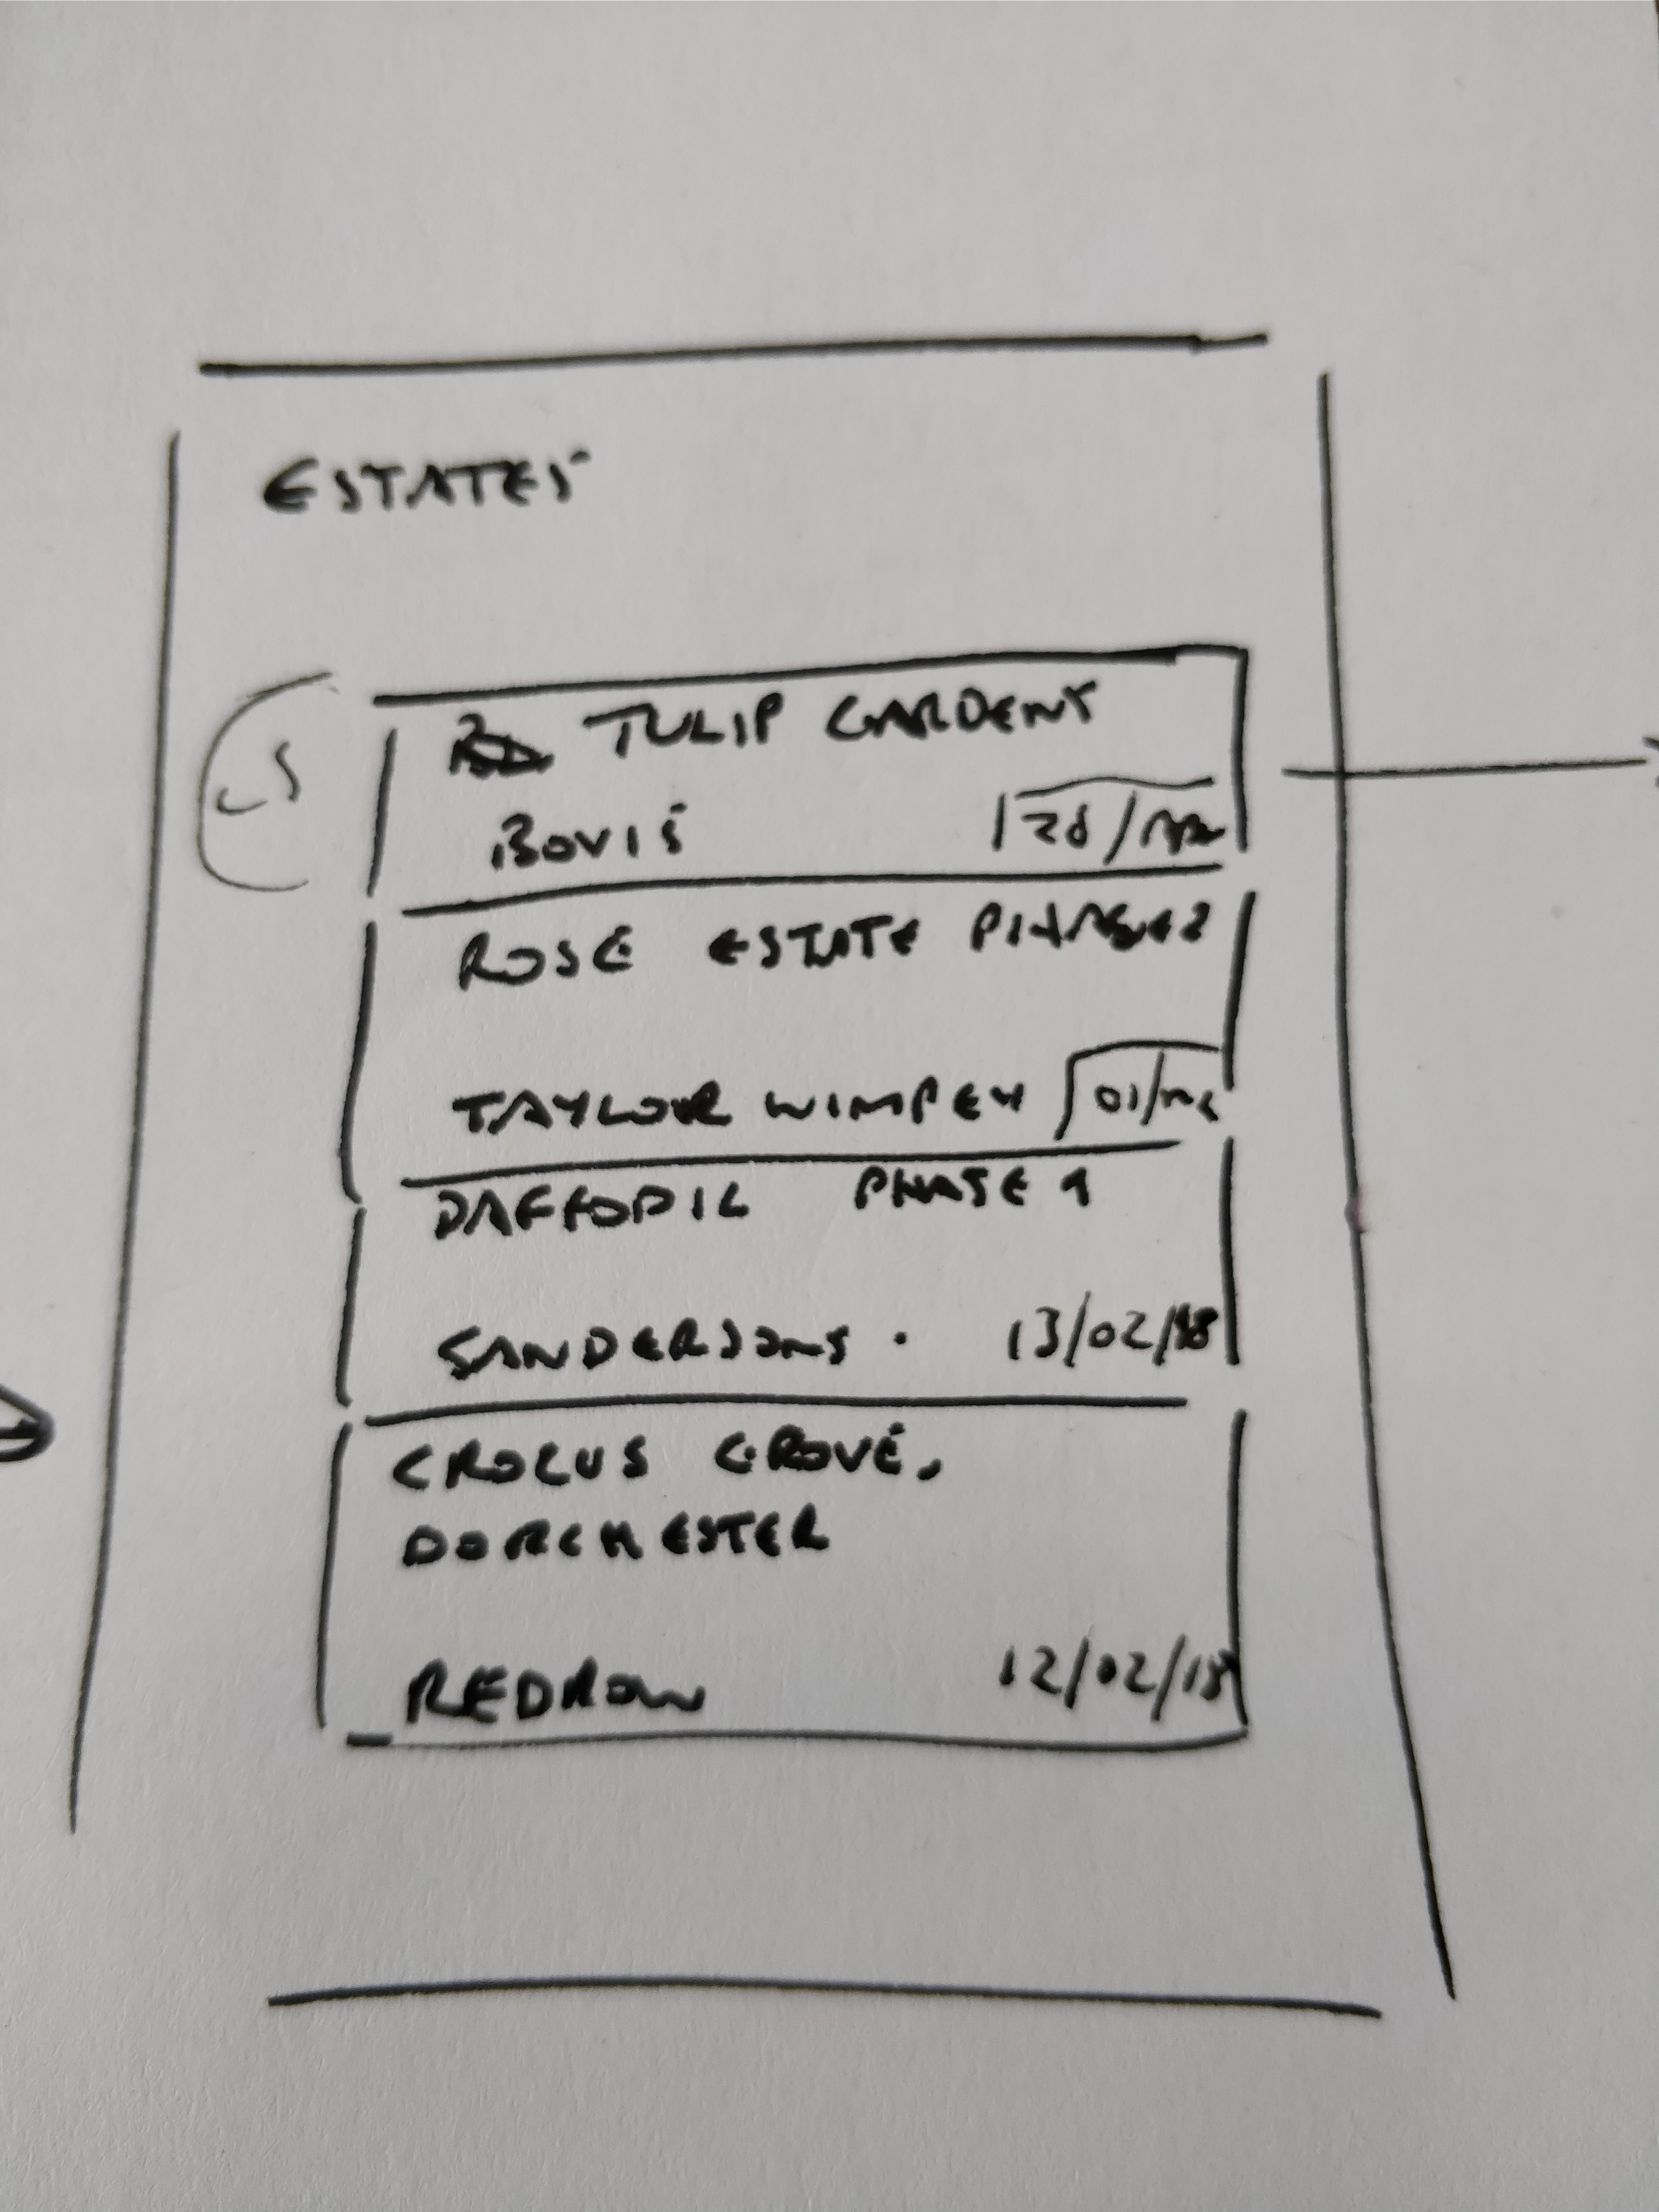 ESTATES
TULIP GARDENS
BOVIS
ROSE ESTATE PHASE 2
TAYLOR WIMPEY
DAFFODIL PHASE 1
SANDERSONS . 13/02/18
CROCUS GROVE,
DORCHESTER
REDROW 12/02/18